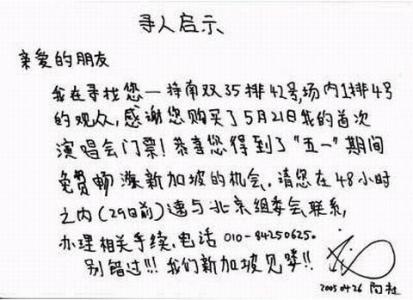 寻人启示
亲爱的朋友
我在寻找您一持南双35排42号,场内1排4号
的观众,感谢您购买了5月21日我的首次
演唱会门票!恭喜您得到了"五一"期间
免费畅游新加坡的机会.请您在48小时
之内(29日前)速与北京组委会联系,
办理相关手续.电话010-84250625.
别错过!!!我们新加坡见喽!!
2005 04 26 阿杜